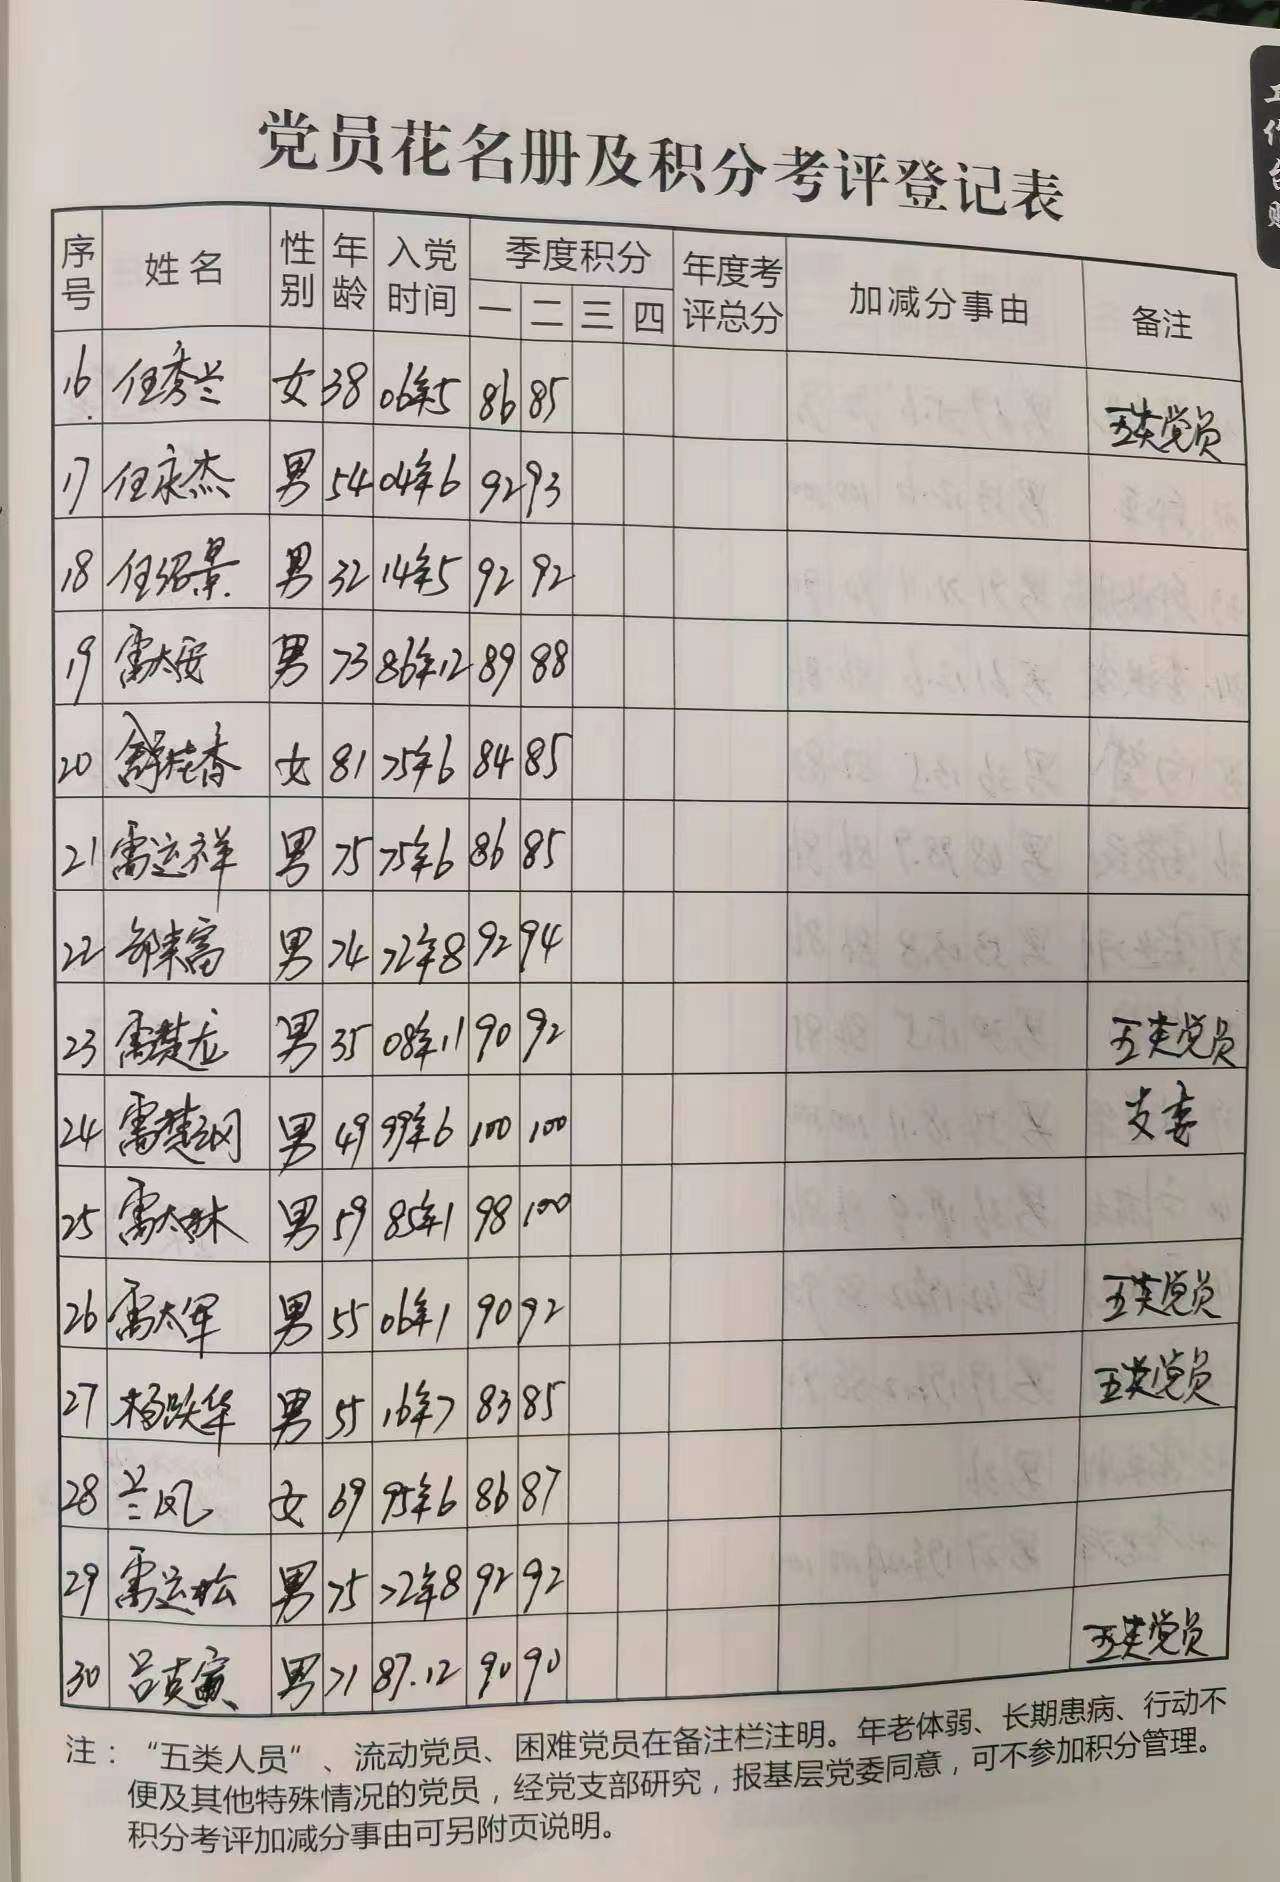 党员花名册及积分考评登记表
序号 姓名 性别 年龄 入党时间 季度积分 一 二 三 四 年度考评总分 加减分事由 备注
16 任秀兰 女 38 06年5 86 85 五类党员
17 任永杰 男 54 04年6 92 93
18 任绍景 男 32 14年5 92 92
19 雷太安 男 73 86年12 89 88
20 舒桂香 女 81 75年6 84 85
21 雷运祥 男 75 75年6 86 85
22 邹来富 男 74 72年8 92 94
23 雷楚龙 男 35 08年11 90 92 五类党员
24 雷楚纲 男 49 99年6 100 100 支委
25 雷太林 男 59 85年1 98 100
26 雷太军 男 55 06年1 90 92 五类党员
27 杨跃华 男 55 16年7 83 85 五类党员
28 兰凤 女 69 95年6 86 87
29 雷运松 男 75 72年8 92 92
30 吕支寅 男 71 87.12 90 90 五类党员
注：“五类人员”、流动党员、困难党员在备注栏注明。年老体弱、长期患病、行动不
便及其他特殊情况的党员，经党支部研究，报基层党委同意，可不参加积分管理。
积分考评加减分事由可另附页说明。
工作台账